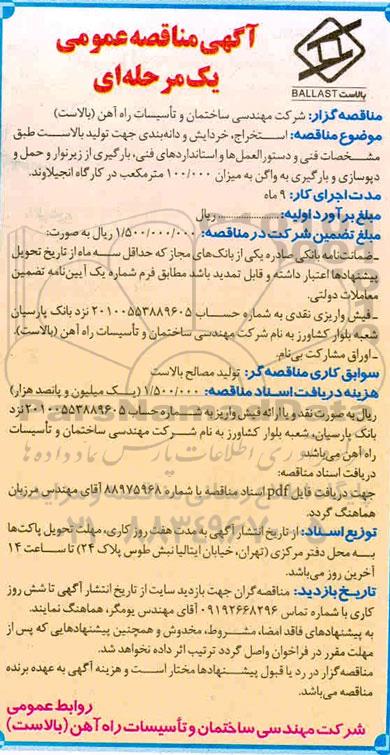 آگهی مناقصه عمومی
یک مرحله‌ای
بالاست BALLAST
مناقصه گزار: شرکت مهندسی ساختمان و تأسیسات راه آهن (بالاست)
موضوع مناقصه: استخراج، خردایش و دانه‌بندی جهت تولید بالاست طبق
مشخصات فنی و دستورالعمل‌ها و استانداردهای فنی، بارگیری از زیرنوار و حمل و
دپوسازی و بارگیری به واگن به میزان ۱۰۰/۰۰۰ مترمکعب در کارگاه انجیلاوند.
مدت اجرای کار: ۹ ماه
مبلغ برآورد اولیه: .................... ریال
مبلغ تضمین شرکت در مناقصه: ۱/۵۰۰/۰۰۰/۰۰۰ ریال به صورت:
ـ ضمانت‌نامه بانکی صادره یکی از بانک‌های مجاز که حداقل سه ماه از تاریخ تحویل
پیشنهادها اعتبار داشته و قابل تمدید باشد مطابق فرم شماره یک آیین‌نامه تضمین
معاملات دولتی.
ـ فیش واریزی نقدی به شماره حساب ۲۰۱۰۰۵۵۳۸۸۹۶۰۵ نزد بانک پارسیان
شعبه بلوار کشاورز به نام شرکت مهندسی ساختمان و تأسیسات راه آهن (بالاست).
ـ اوراق مشارکت بی‌نام.
سوابق کاری مناقصه‌گر: تولید مصالح بالاست
هزینه دریافت اسناد مناقصه: ۱/۵۰۰/۰۰۰ (یک میلیون و پانصد هزار)
ریال به صورت نقد و یا ارائه فیش واریز به شماره حساب ۲۰۱۰۰۵۵۳۸۸۹۶۰۵ نزد
بانک پارسیان، شعبه بلوار کشاورز به نام شرکت مهندسی ساختمان و تأسیسات
راه آهن می‌باشد.
دریافت اسناد مناقصه:
جهت دریافت فایل pdf اسناد مناقصه با شماره ۸۸۹۷۵۹۶۸ آقای مهندس مرزبان
هماهنگ گردد.
توزیع اسناد: از تاریخ انتشار آگهی به مدت هفت روز کاری، مهلت تحویل پاکت‌ها
به محل دفتر مرکزی (تهران، خیابان ایتالیا نبش طوس پلاک ۲۴) تا ساعت ۱۴
آخرین روز می‌باشد.
تاریخ بازدید: مناقصه‌گران جهت بازدید سایت از تاریخ انتشار آگهی تا شش روز
کاری با شماره تماس ۰۹۱۹۲۶۶۸۲۹۶ آقای مهندس یومگر، هماهنگ نمایند.
به پیشنهادهای فاقد امضا، مشروط، مخدوش و همچنین پیشنهادهایی که پس از
مهلت مقرر در فراخوان واصل گردد ترتیب اثر داده نخواهد شد.
مناقصه‌گزار در رد یا قبول پیشنهادها مختار است و هزینه آگهی به عهده برنده
مناقصه می‌باشد.
روابط عمومی
شرکت مهندسی ساختمان و تأسیسات راه آهن (بالاست)